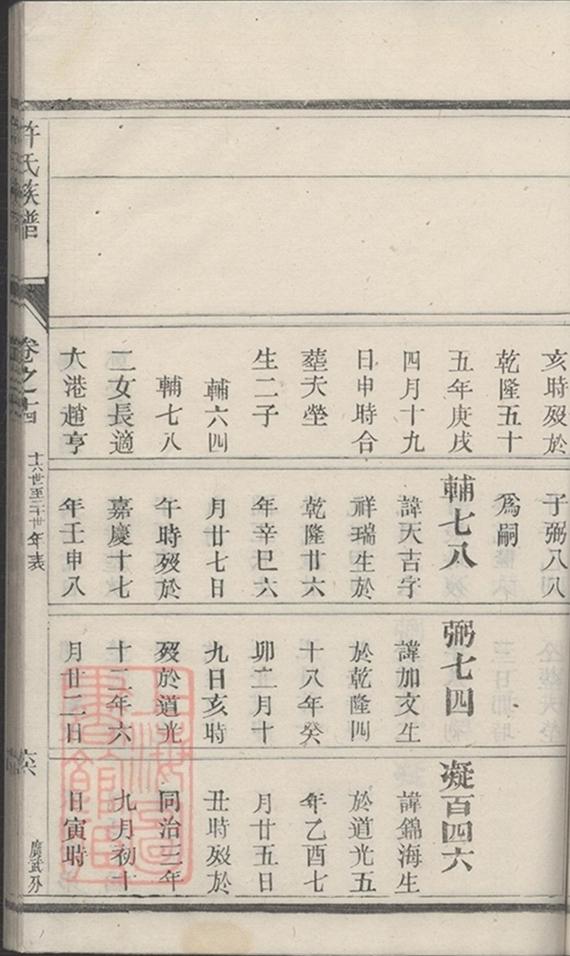 亥時歿於
乾隆五十
五年庚戌
四月十九
日申時合
塟夫塋
生二子
輔六四
輔七八
二女長適
大港趙亨
子弼八八
爲嗣
輔七八
諱天吉字
祥瑞生於
乾隆廿六
年辛巳六
月廿七日
午時歿於
嘉慶十七
年壬申八
弼七四
諱加文生
於乾隆四
十八年癸
卯二月十
九日亥時
歿於道光
十二年六
月廿二日
凝百四六
諱錦海生
於道光五
年乙酉七
月廿五日
丑時歿於
同治三年
九月初十
日寅時
許氏族譜
卷之十四
十六世至二十世年表